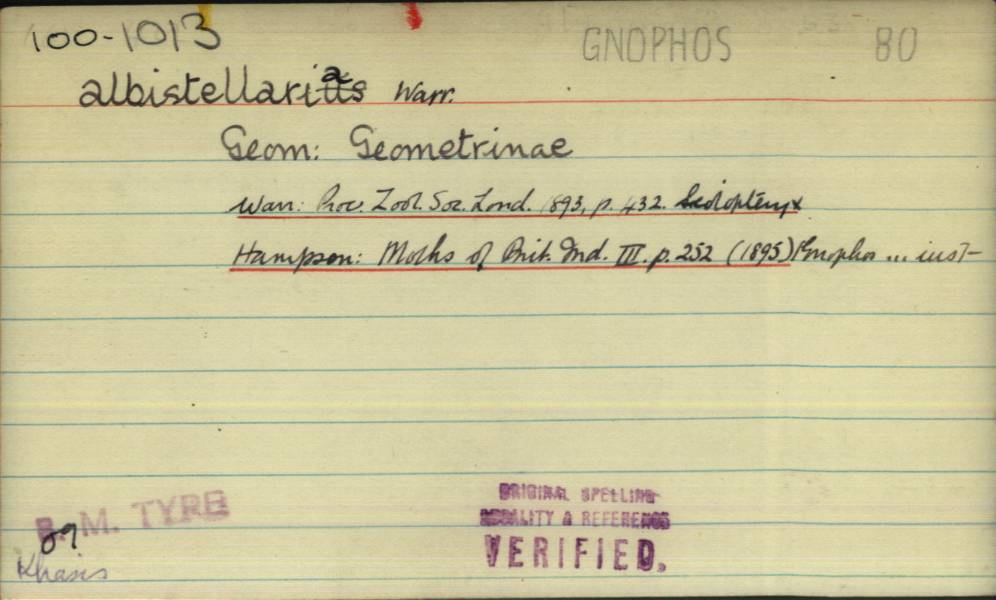 100-1013
GNOPHOS 80
albistellarias Warr.
Geom: Geometrinae
Warr: Proc. Zool. Soc. Lond. 1893, p. 432. Sciopteryx
Hampson: Moths of Brit. Ind. III. p. 252 (1895) Gnophos ...
B. M. TYPE
♂
Khasis
ORIGINAL SPELLING
LOCALITY & REFERENCE
VERIFIED.